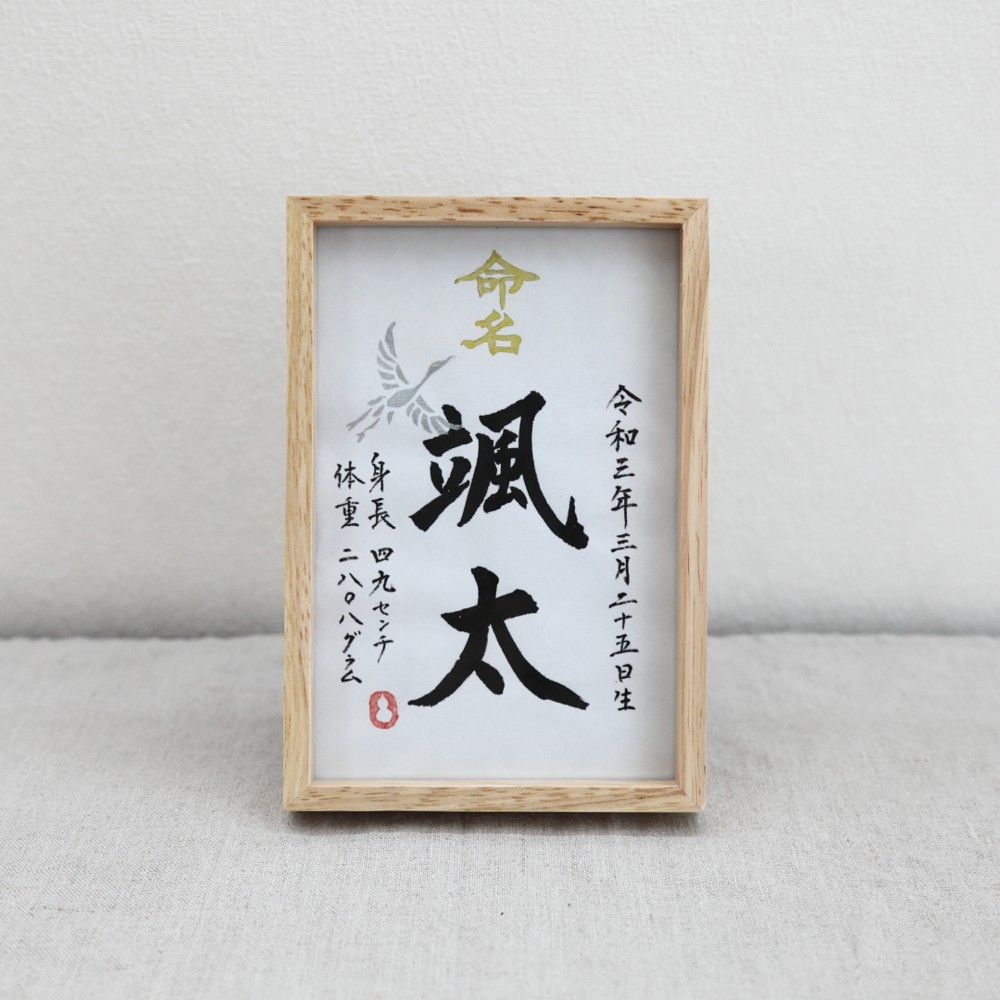 命名
令和三年三月二十五日生
颯太
身長 四九センチ
体重 二八〇八グラム